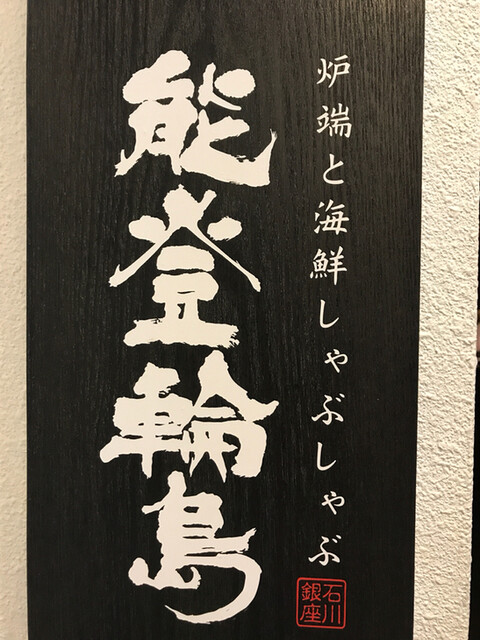 炉端と海鮮しゃぶしゃぶ
能登輪島
石川
銀座